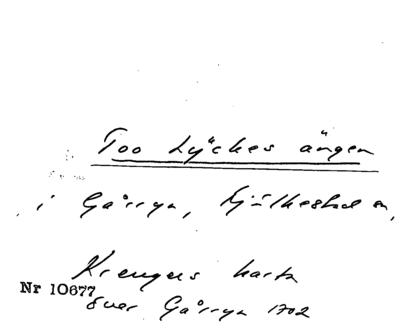 Too Lyckes ängen
i Gårryn, Kjulkestad sn,
Krengers karta
Nr 10677
över Gårryn 1702